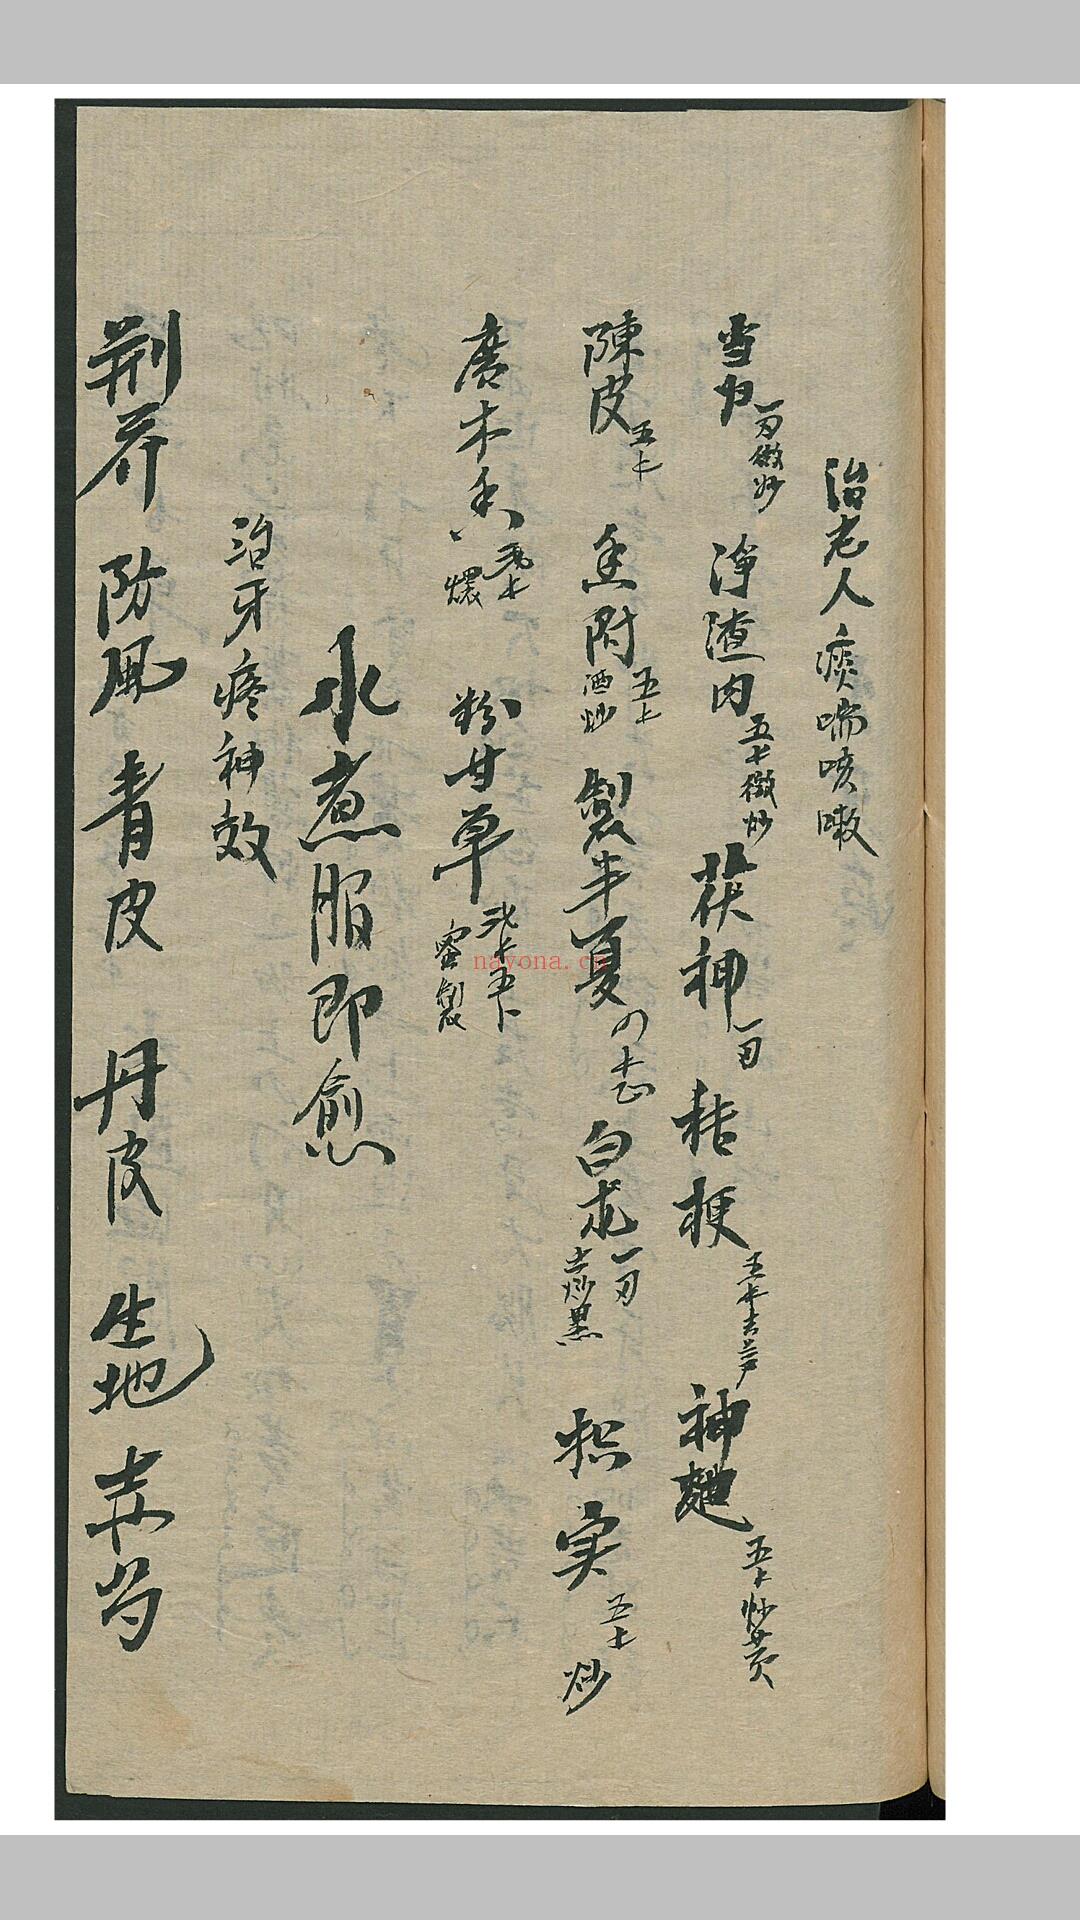 治老人痰喘咳嗽
当归一刄微炒 淨渣肉五卜微炒 茯神一刄 桔梗五卜去芦 神麯五卜炒黄
陳皮五卜 香附五卜酒炒 製半夏 白术一刄土炒黑 枳实五卜炒
廣木香弍卜煨 粉甘草弍卜五卜蜜製
水煮服即愈
治牙疼神效
荆芥 防風 青皮 丹皮 生地 赤芍
nayona.cn